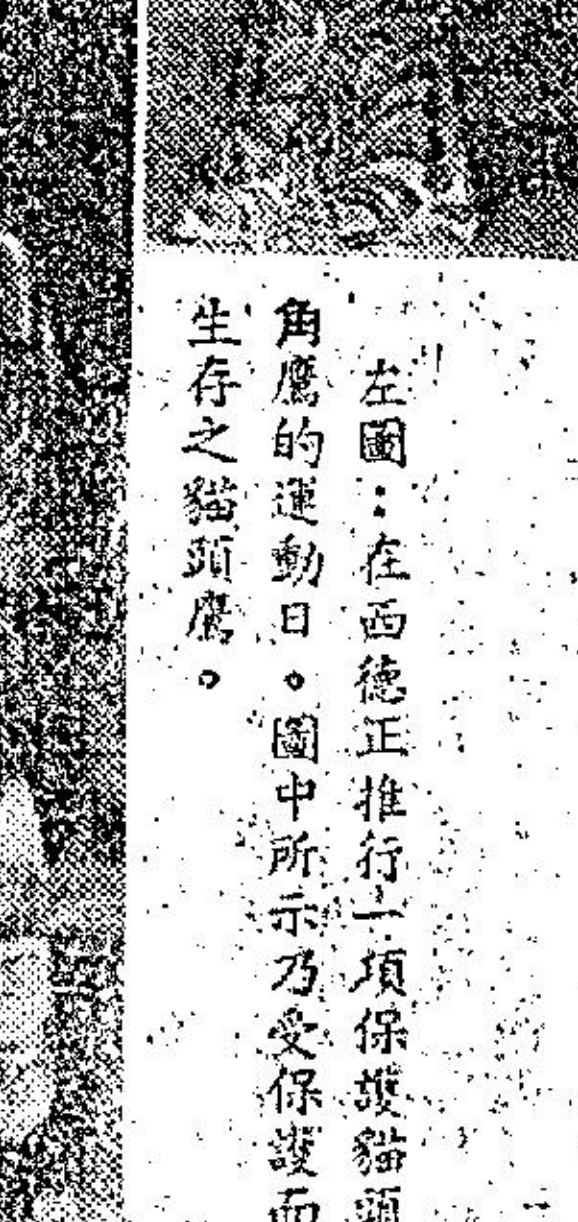 左圖：在西德正推行一項保護貓頭
角鷹的運動日。圖中所示乃受保護而
生存之貓頭鷹。